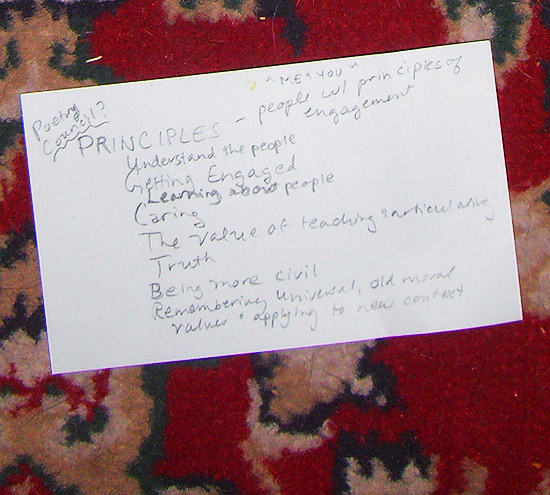 Poetry
Council?
"ME + YOU"
PRINCIPLES – people w/ principles of
engagement
Understand the people
Getting Engaged
Learning about people
Caring
The value of teaching & articulating
Truth
Being more civil
Remembering universal, old moral
values + applying to new context